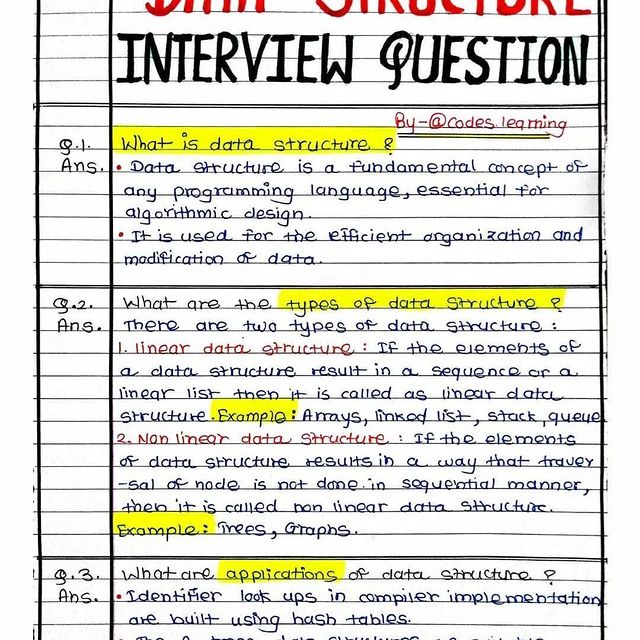 DATA STRUCTURE
INTERVIEW QUESTION
By-@codes.learning
Q.1. What is data structure ?
Ans. • Data structure is a fundamental concept of
any programming language, essential for
algorithmic design.
• It is used for the efficient organization and
modification of data.
Q.2. What are the types of data structure ?
Ans. There are two types of data structure :
1. linear data structure : If the elements of
a data structure result in a sequence or a
linear list then it is called as linear data
structure. Example : Arrays, linked list, stack, queue
2. Non linear data structure : If the elements
of data structure results in a way that traver
-sal of node is not done in sequential manner,
then it is called non linear data structure.
Example : Trees, Graphs.
Q.3. What are applications of data structure ?
Ans. • Identifier look ups in compiler implementation
are built using hash tables.